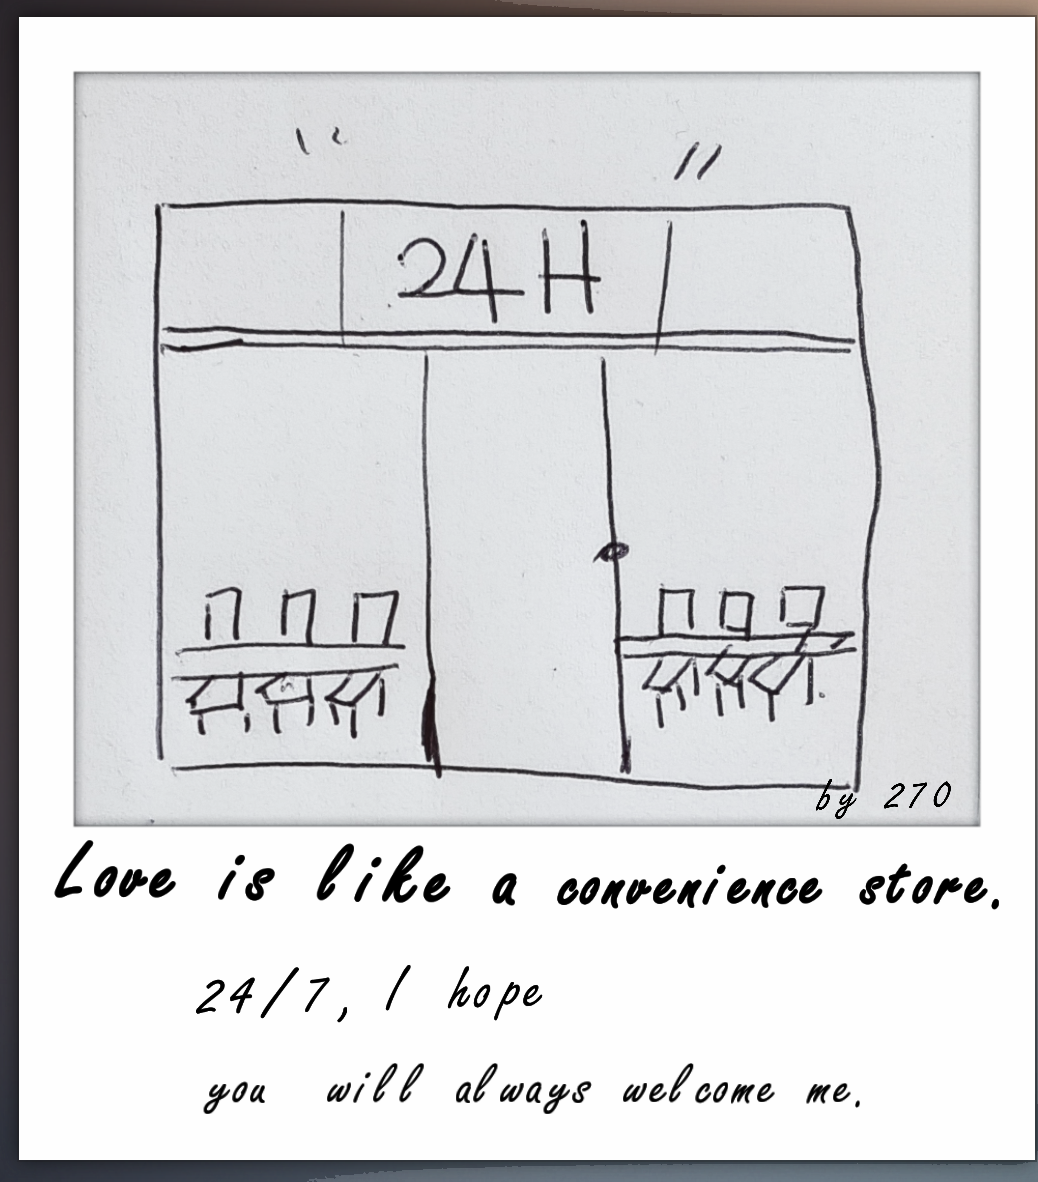 24 H
by 270
Love is like a convenience store.
24/7, I hope
you will always welcome me.